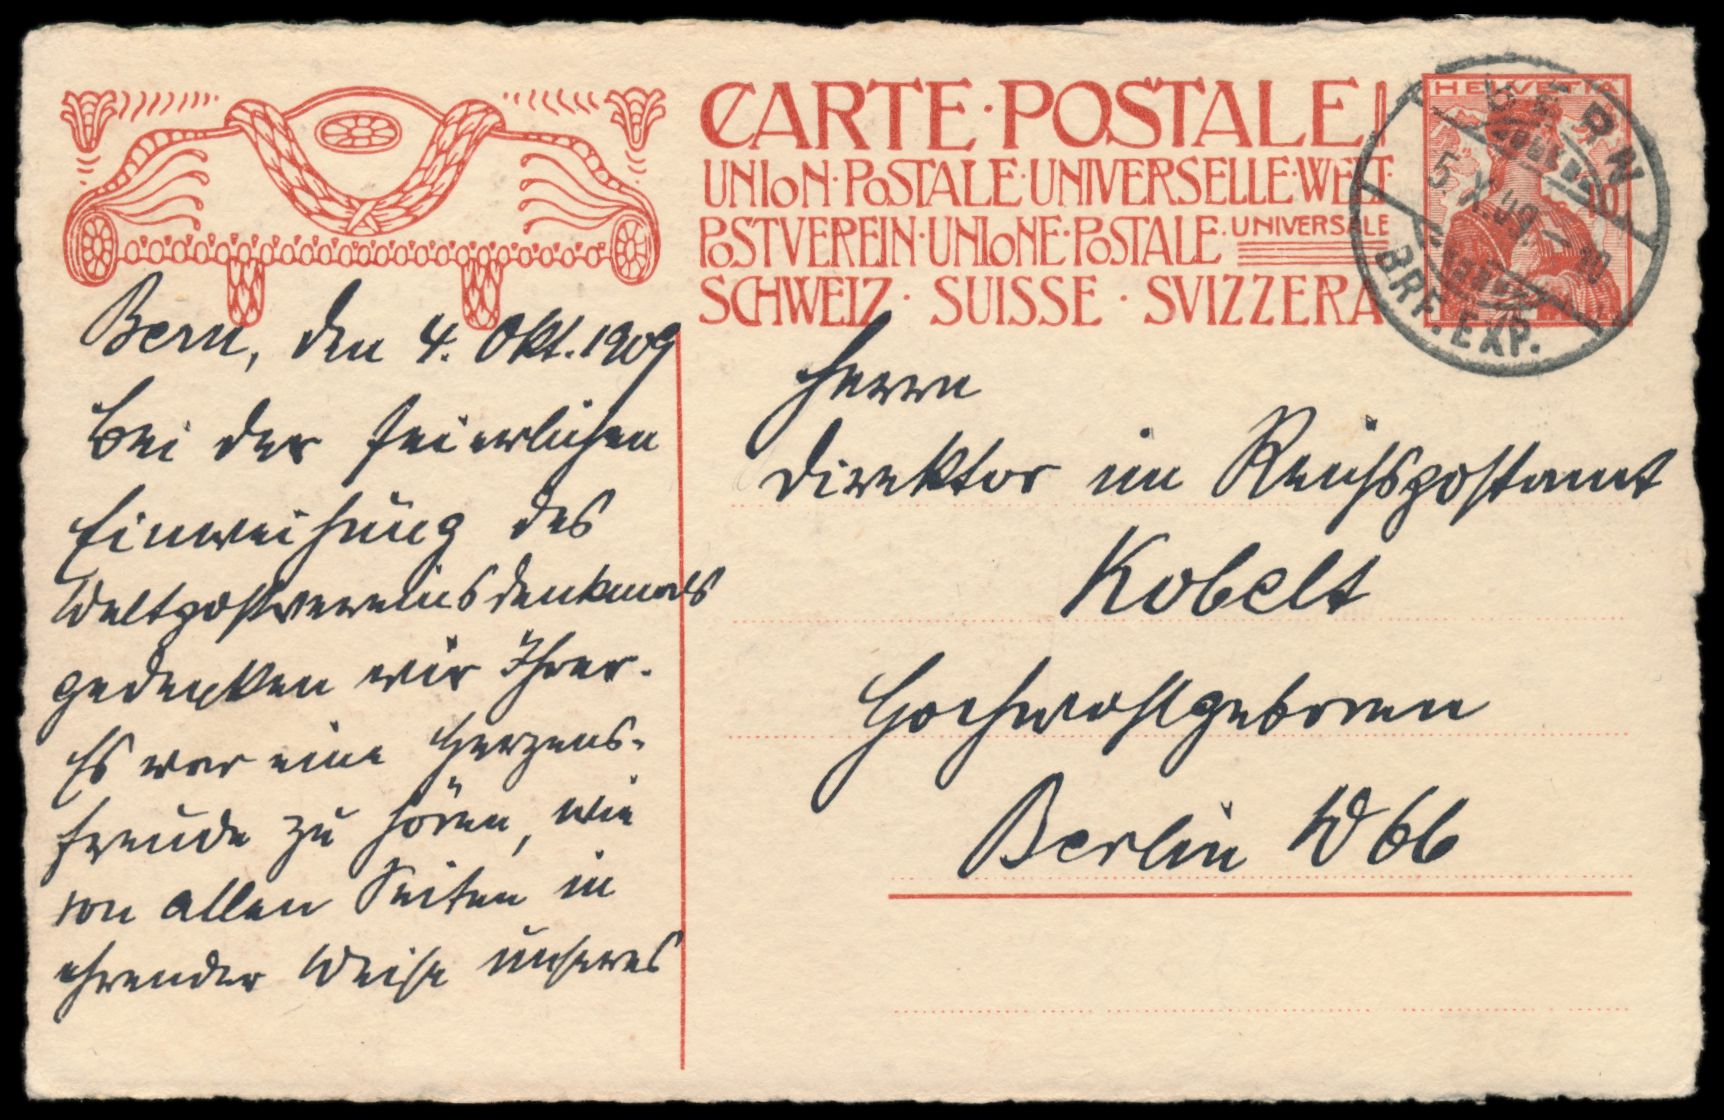 CARTE·POSTALE
UNION·POSTALE·UNIVERSELLE·WELT·
POSTVEREIN·UNIONE·POSTALE·UNIVERSALE
SCHWEIZ·SUISSE·SVIZZERA
HELVETIA
10
BERN
5.X.09.–10
BRF. EXP.
Bern, den 4. Okt. 1909
Bei der feierlichen
Einweihung des
Weltpostvereinsdenkmals
gedenken wir Ihrer.
Es war eine Herzens-
freude zu hören, wie
von allen Seiten in
ehrender Weise unseres
Herrn
Direktor im Reichspostamt
Kobelt
Hochwohlgeboren
Berlin W 66